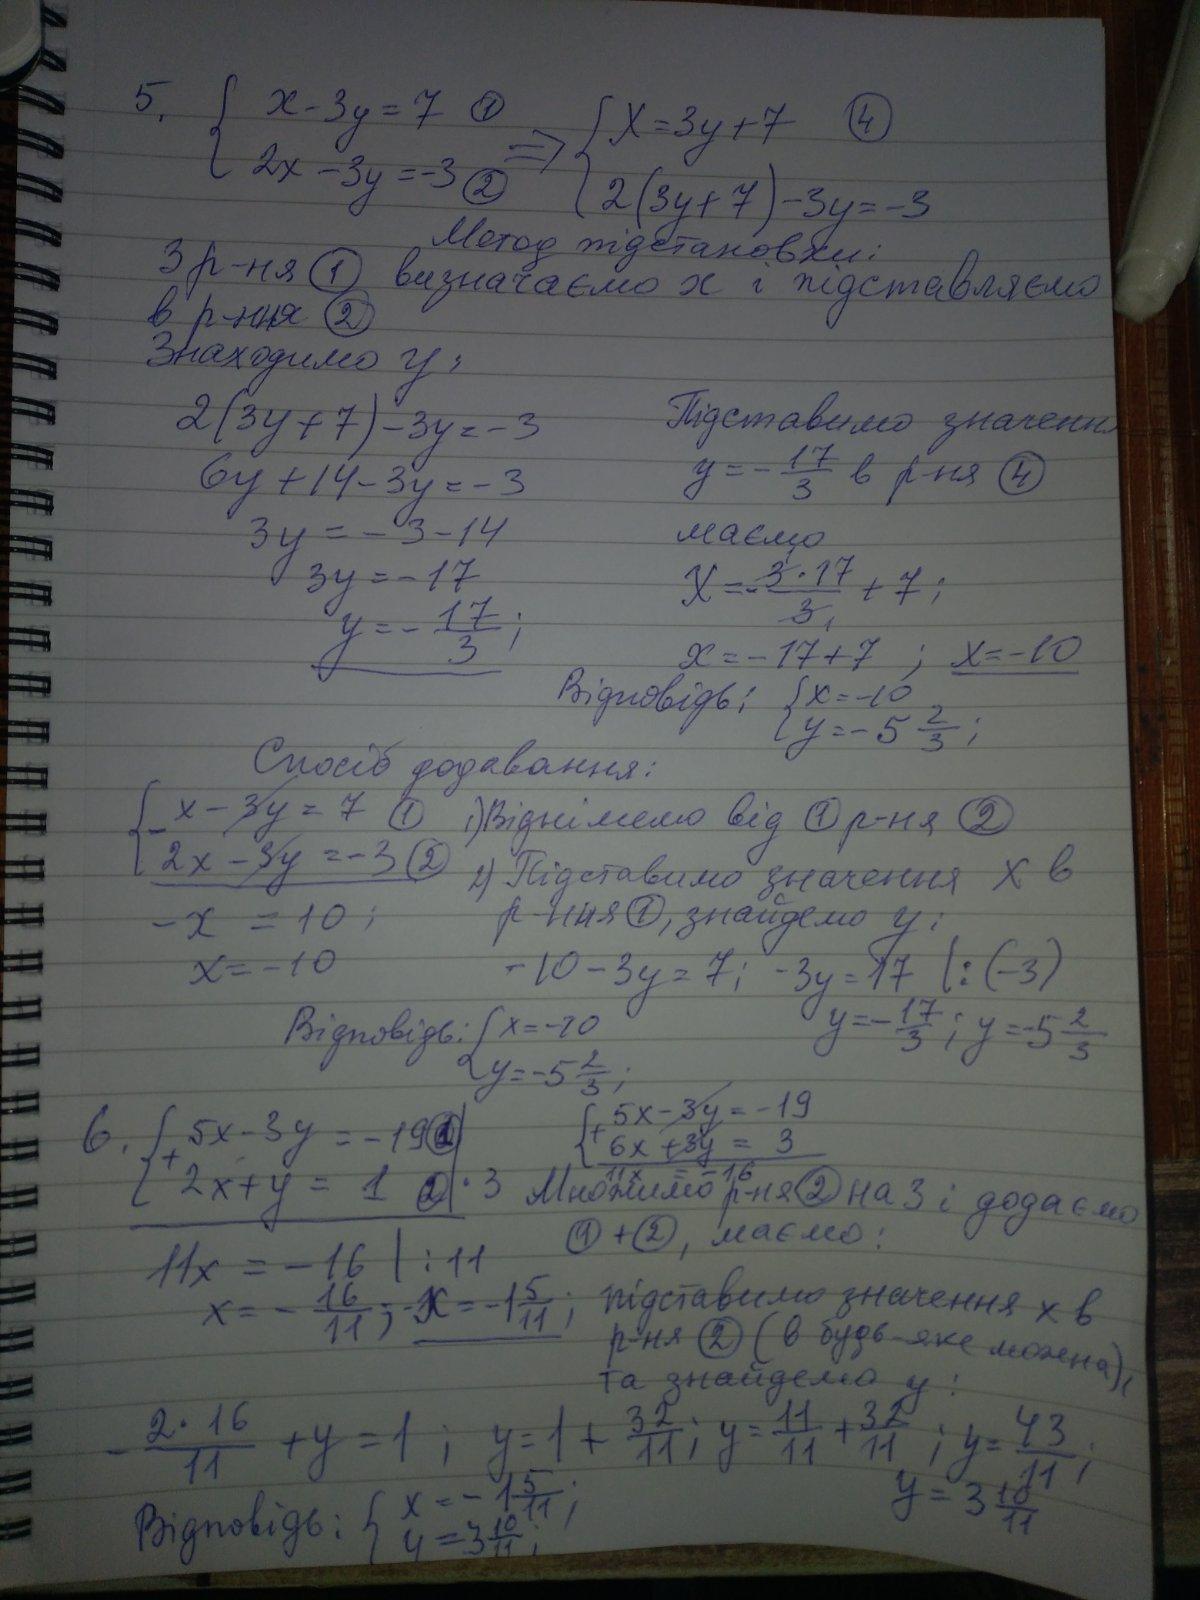 5. { x - 3y = 7 ① => { x = 3y + 7 ④
2x - 3y = -3 ② 2(3y + 7) - 3y = -3
Метод підстановки:
З р-ня ① визначаємо x і підставляємо
в р-ння ②
Знаходимо y:
2(3y + 7) - 3y = -3
6y + 14 - 3y = -3
3y = -3 - 14
3y = -17
y = - 17/3;
Підставимо значення
y = - 17/3 в р-ня ④
маємо
x = - 3·17/3 + 7;
x = -17 + 7 ; x = -10
Відповідь: { x = -10
y = -5 2/3;
Спосіб додавання:
{ - x - 3y = 7 ①
2x - 3y = -3 ②
-x = 10;
x = -10
1) Віднімемо від ① р-ня ②
2) Підставимо значення x в
р-ння ①, знайдемо y:
-10 - 3y = 7; -3y = 17 | : (-3)
y = - 17/3; y = -5 2/3
Відповідь: { x = -10
y = -5 2/3;
6. { + 5x - 3y = -19 ①
2x + y = 1 ② | · 3
11x = -16 | : 11
x = - 16/11; x = -1 5/11;
{ + 5x - 3y = -19
6x + 3y = 3
11x = -16
Множимо р-ня ② на 3 і додаємо
① + ②, маємо:
підставимо значення x в
р-ня ② (в будь-яке можна),
та знайдемо y:
- 2·16/11 + y = 1; y = 1 + 32/11; y = 11/11 + 32/11; y = 43/11;
y = 3 10/11
Відповідь: { x = -1 5/11;
y = 3 10/11;